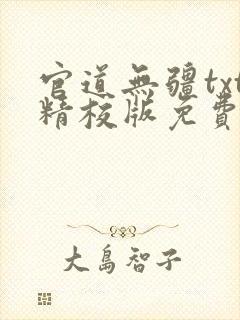 官道無疆txt
精校版免費
大島智子